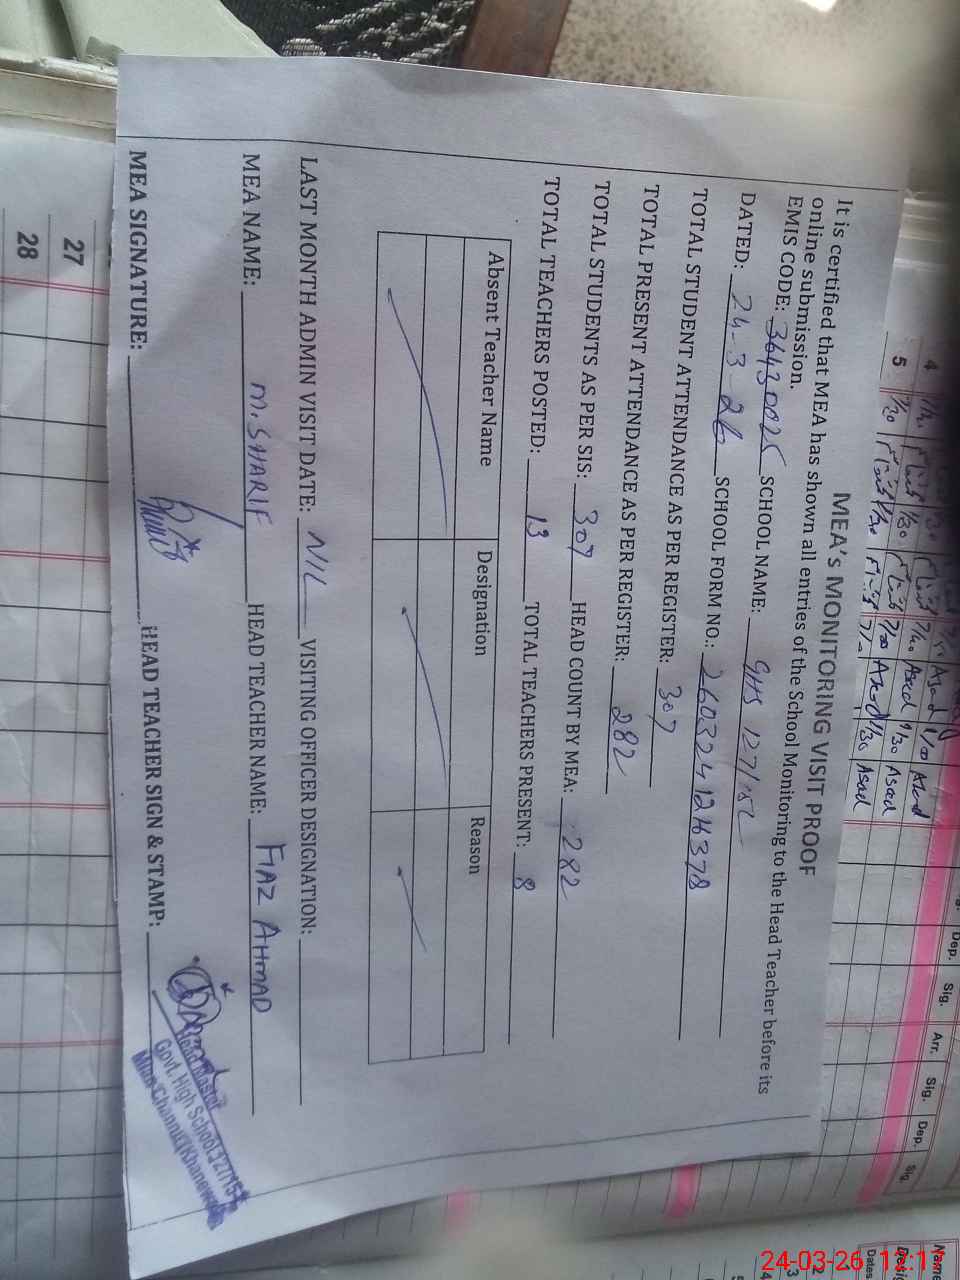 MEA's MONITORING VISIT PROOF
It is certified that MEA has shown all entries of the School Monitoring to the Head Teacher before its
online submission.
EMIS CODE: 36430025 SCHOOL NAME: GHS 127/15L
DATED: 24-3-26 SCHOOL FORM NO.: 260324126378
TOTAL STUDENT ATTENDANCE AS PER REGISTER: 307
TOTAL PRESENT ATTENDANCE AS PER REGISTER: 282
TOTAL STUDENTS AS PER SIS: 307 HEAD COUNT BY MEA: 282
TOTAL TEACHERS POSTED: 13 TOTAL TEACHERS PRESENT: 8
Absent Teacher Name Designation Reason
LAST MONTH ADMIN VISIT DATE: NIL VISITING OFFICER DESIGNATION:
MEA NAME: M. SHARIF HEAD TEACHER NAME: FIAZ AHMAD
MEA SIGNATURE: HEAD TEACHER SIGN & STAMP:
Head Master
Govt. High School 127/15-L
Mian Channu (Khanewal)
4
5
Asad
Asad
Asad
Asad
Asad
Dep. Sig. Arr. Sig. Dep. Sig.
27
28
24-03-26 11:11